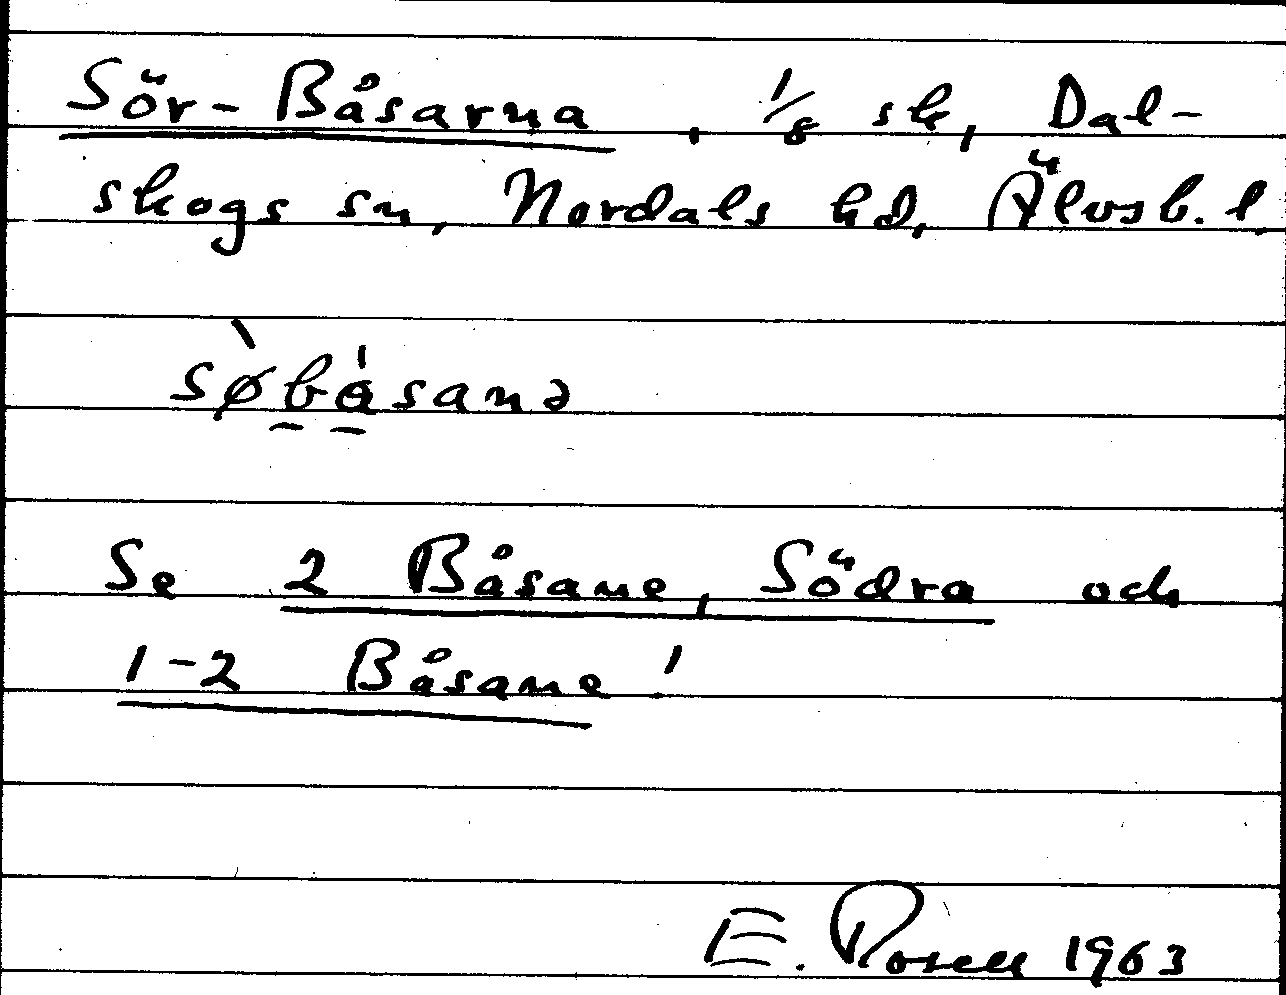 Sör-Båsarna, 1/8 sk, Dal-
skogs sn, Nordals hd, Älvsb. l.
Se 2 Båsane, Södra och
1-2 Båsane!
E. Rosell 1963